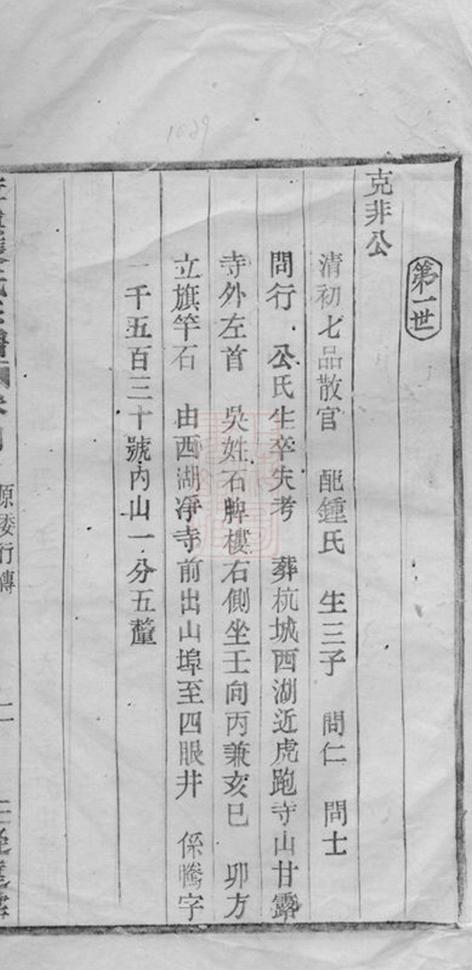 1029
第一世
克非公
清初七品散官　配鍾氏　生三子　問仁　問士
問行　公氏生卒失考　葬杭城西湖近虎跑寺山甘露
寺外左首　吳姓石牌樓右側坐壬向丙兼亥巳　卯方
立旗竿石　由西湖凈寺前出山埠至四眼井　係騰字
一千五百三十號內山一分五釐
行傳